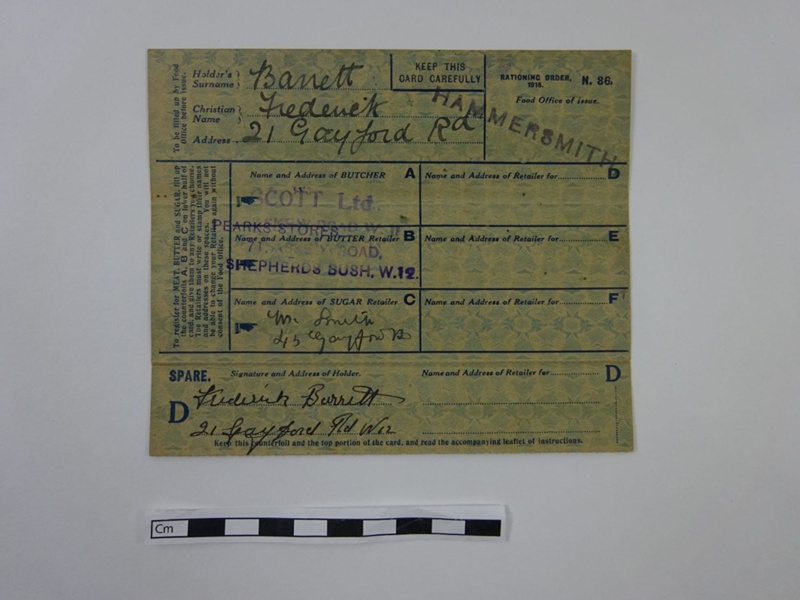 To be filled up by Food
Office before issue.
Holder's
Surname
Barrett
Christian
Name
Frederick
Address
21 Gayford Rd
KEEP THIS
CARD CAREFULLY
RATIONING ORDER,
1918.
N. 86.
Food Office of issue.
HAMMERSMITH
To register for MEAT, BUTTER and SUGAR, fill up
the counterfoils A, B and C on lower half of
card, and give them to any Retailers you choose.
The Retailers must write or stamp their names
and addresses on these spaces. You will not
be able to change your Retailer again without
consent of the Food Office.
Name and Address of BUTCHER A
SCOTT Ltd.
Name and Address of Retailer for D
PEARKS STORES
Name and Address of BUTTER Retailer B
ROAD,
SHEPHERDS BUSH, W.12.
Name and Address of Retailer for E
Name and Address of SUGAR Retailer C
Smith
45 Gayford Rd
Name and Address of Retailer for F
SPARE.
Signature and Address of Holder.
Name and Address of Retailer for D
D
Frederick Barrett
21 Gayford Rd W12
Keep this counterfoil and the top portion of the card, and read the accompanying leaflet of instructions.
Cm